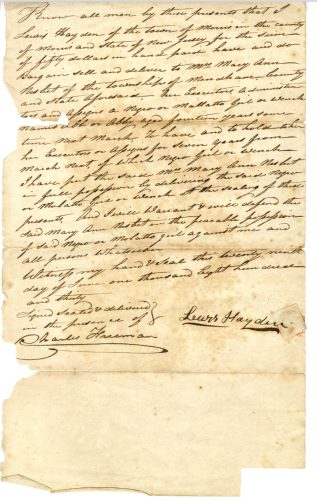 Know all men by these presents that I
Lewis Hayden of the town of Morris in the county
of Morris and State of New Jersey for the sum
of fifty dollars in hand paid have and do
Bargain sell and deliver to Mrs Mary Ann
Nesbet of the township of Mendham County
and State aforesaid Her Executors Administer
tors and assigns a Negro or Mullatto Girl or wench
named or Abby aged fourteen years some
time next March To have and to hold to her
her Executors or assigns for seven years from
March next of which Negro Girl or wench
I have put the said Mrs Mary Ann Nesbet
in full possession by delivering the said Negro
or Mulatto Girl or Wench At the sealing of these
presents, and I will Warrant & will defend the
said Mary Ann Nesbet in the peacable possession
of said Negro or Mulatto girl against me and
all persons Whatsoever
Witness my hand & seal this twenty ninth
day of June one thousand Eight hundred
and thirty
Signed sealed & delivered
in the presence of
Charles Freeman
Lewis Hayden